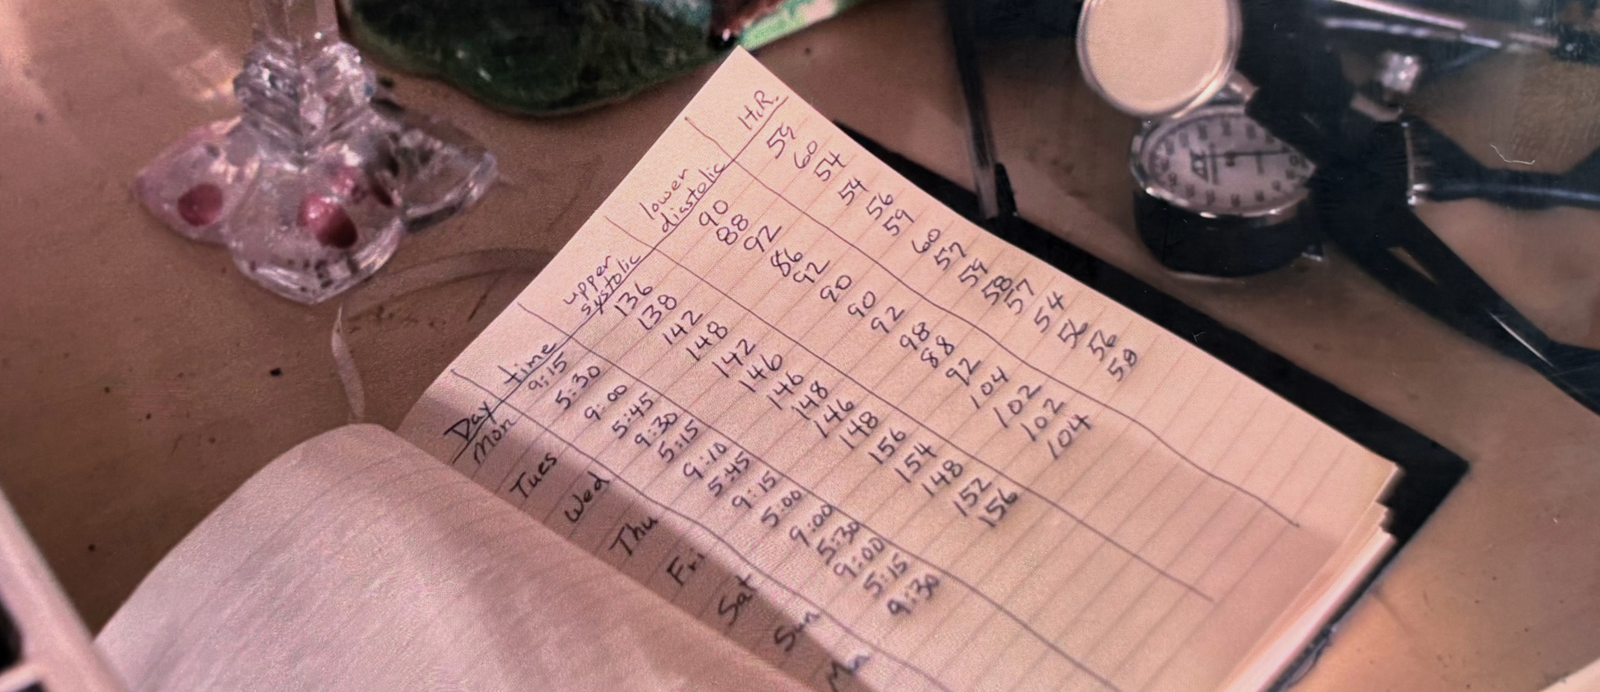 upper lower
Day time systolic diastolic H.R.
Mon 9:15 136 90 59
5:30 138 88 60
Tues 9:00 142 92 54
5:45 148 86 54
Wed 9:30 142 92 56
5:15 146 90 59
Thu 9:10 146 90 60
5:45 148 92 57
Fri 9:15 146 98 59
5:00 148 88 58
Sat 9:00 156 92 57
5:30 154 104 54
Sun 9:00 148 102 56
5:15 152 102 56
9:30 156 104 58